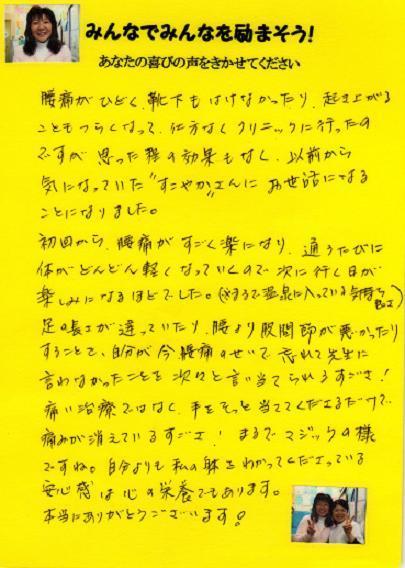 みんなでみんなを励まそう!
あなたの喜びの声をきかせてください
腰痛がひどく、靴下もはけなかったり、起き上がる
こともつらくなって、仕方なくクリニックに行ったの
ですが思った程の効果もなく、以前から
気になっていた"すこやか"さんにお世話になる
ことになりました。
初回から、腰痛がすごく楽になり、通うたびに
体がどんどん軽くなっていくので次に行く日が
楽しみになるほどでした。(※まるで温泉に入っている気持ち
足の長さが違っていたり、腰より股関節が悪かったり
することで、自分が今腰痛のせいで忘れて先生に
言わなかったことを次々と言い当てられるすごさ!
痛い治療ではなく、手をそっと当ててくださるだけで
痛みが消えているすごさ!まるでマジックの様
ですね。自分よりも私の躰をわかってくださっている
安心感は心の栄養でもあります。
本当にありがとうございます!